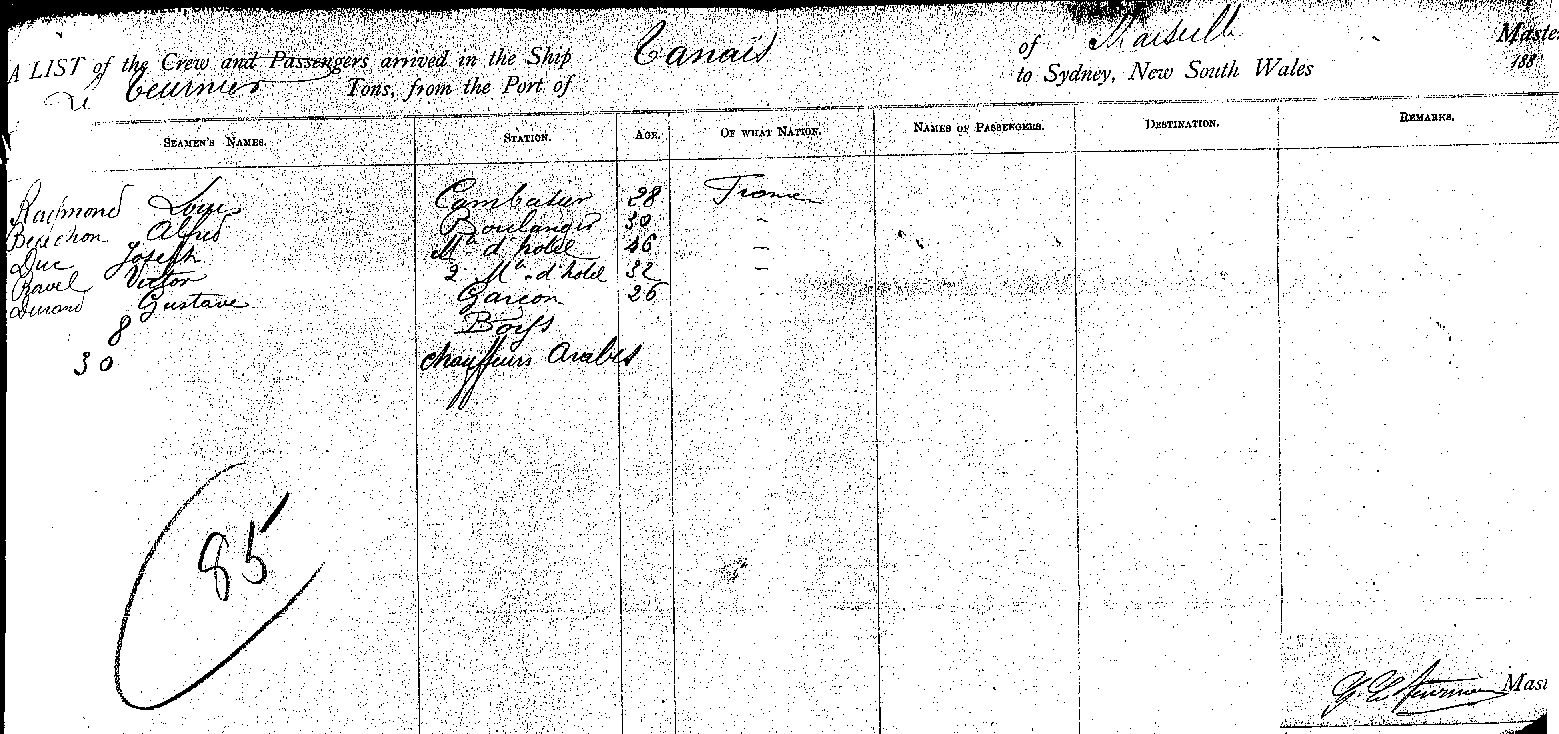 A LIST of the Crew and Passengers arrived in the Ship Tanaïs of Marseille Maste
Le Tournier Tons, from the Port of to Sydney, New South Wales 188
SEAMEN'S NAMES. STATION. AGE. OF WHAT NATION. NAMES OF PASSENGERS. DESTINATION. REMARKS.
Raymond Louis Cambusier 28 France
Alfred Boulanger 30 "
Duc Joseph Me d'hotel 46 "
Ravel Victor 2 Me d'hotel 32 "
Durand Gustave Garcon 26
8 Boys
30 chauffeurs Arabes
85
Mast